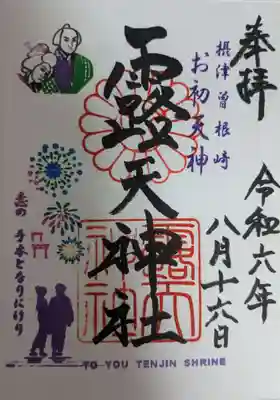 奉拝
令和六年
八月十六日
摂津曽根崎
お初天神
露天神社
恋の手本となりにけり
TO YOU TENJIN SHRINE
露天
神社